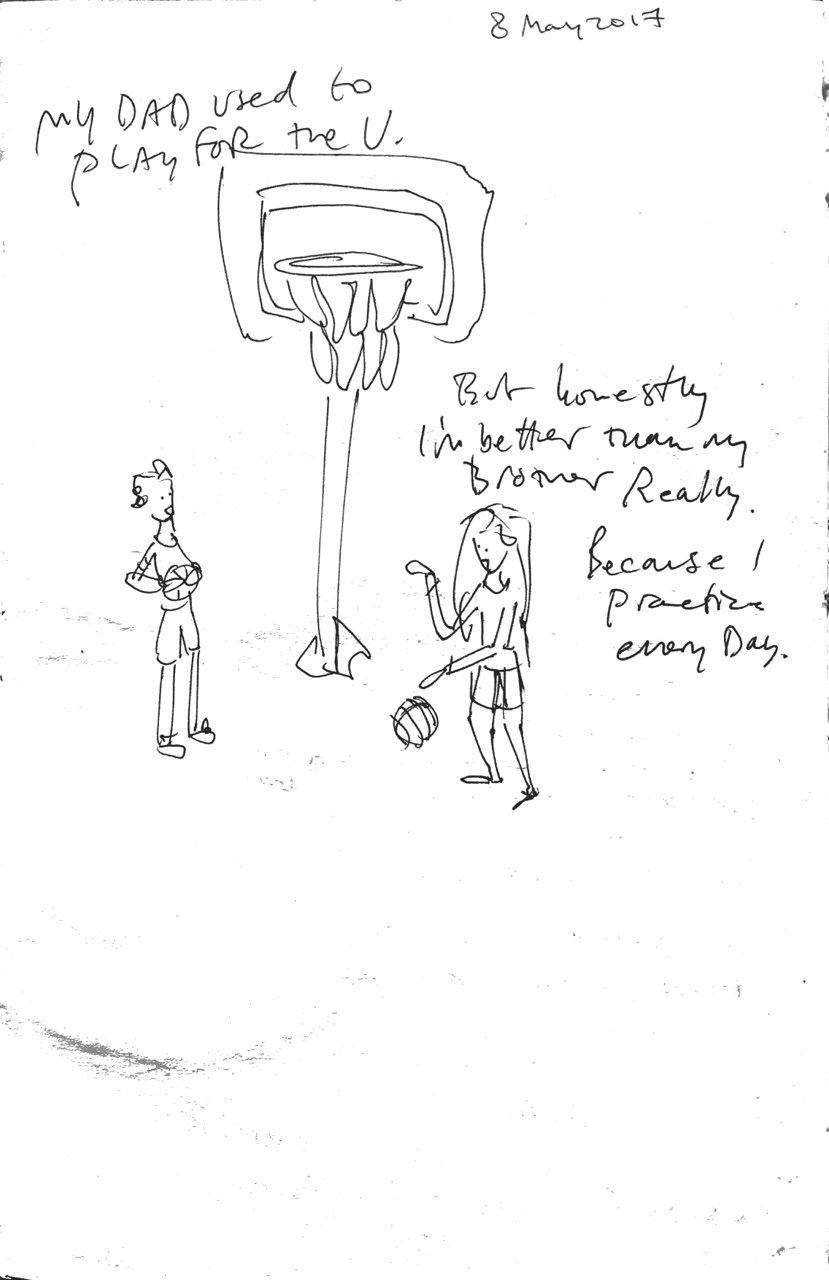 8 May 2017
My DAD used to
PLAY FOR the U.
But honestly
I'm better than my
Brother Really.
Because I
Practice
every Day.